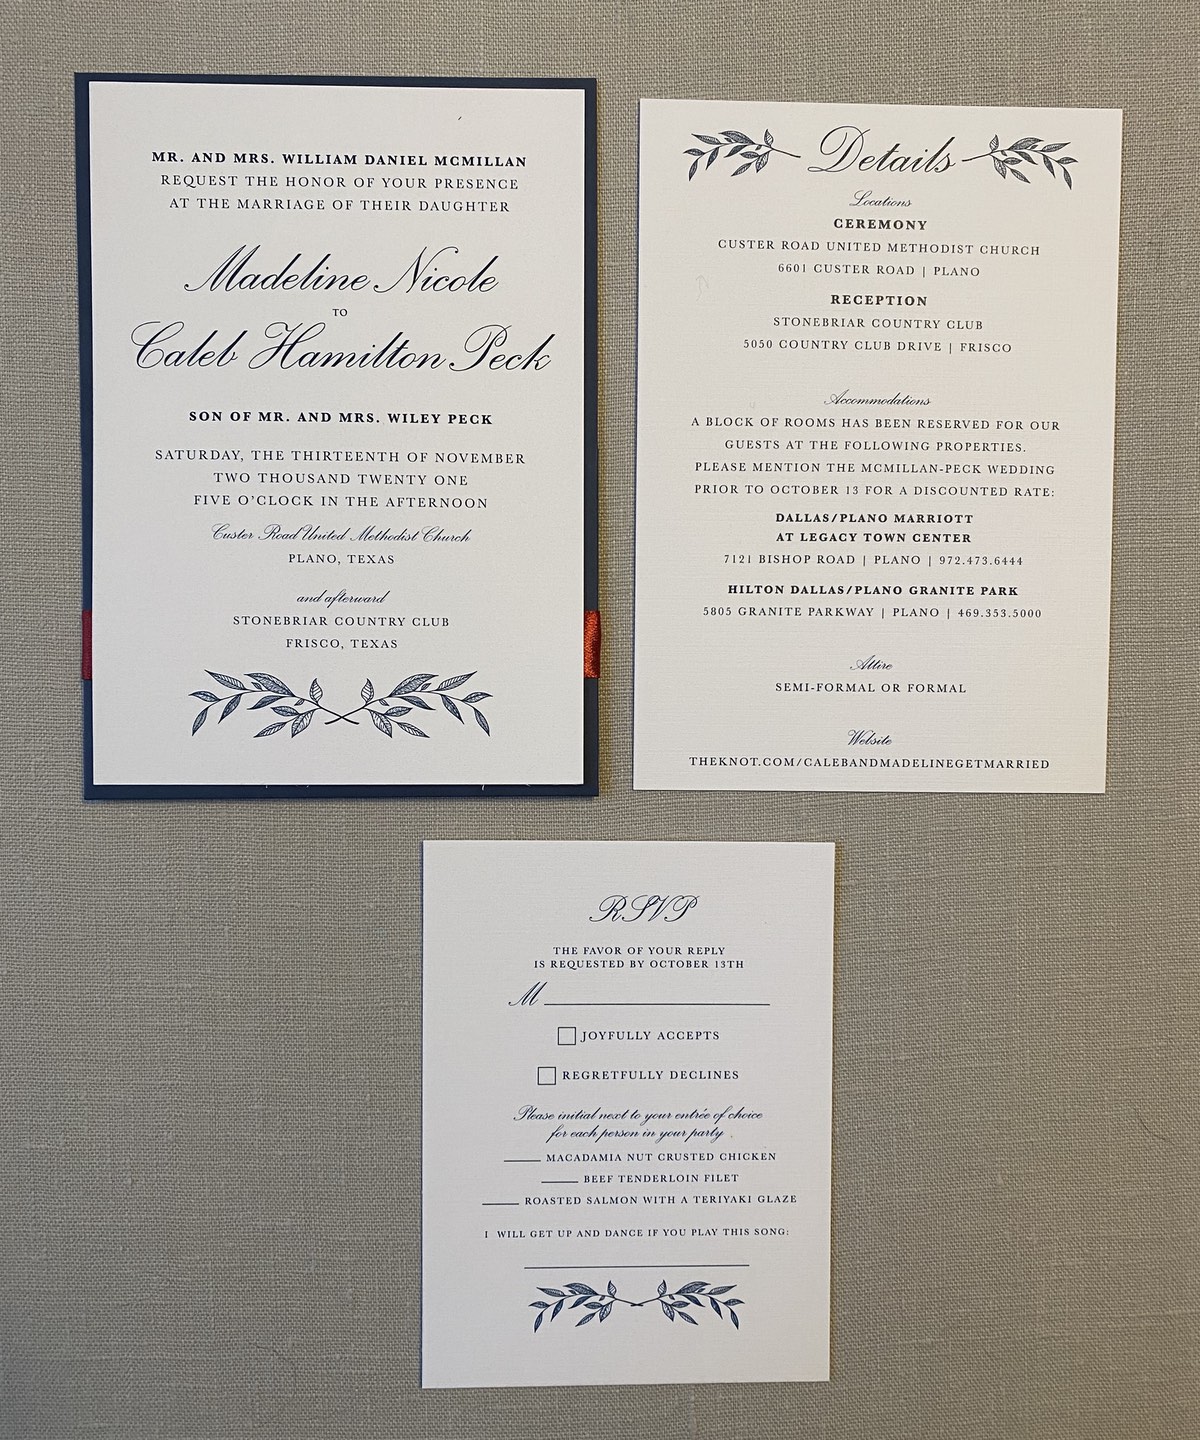 MR. AND MRS. WILLIAM DANIEL MCMILLAN
REQUEST THE HONOR OF YOUR PRESENCE
AT THE MARRIAGE OF THEIR DAUGHTER
Madeline Nicole
TO
Caleb Hamilton Peck
SON OF MR. AND MRS. WILEY PECK
SATURDAY, THE THIRTEENTH OF NOVEMBER
TWO THOUSAND TWENTY ONE
FIVE O'CLOCK IN THE AFTERNOON
Custer Road United Methodist Church
PLANO, TEXAS
and afterward
STONEBRIAR COUNTRY CLUB
FRISCO, TEXAS
Details
Locations
CEREMONY
CUSTER ROAD UNITED METHODIST CHURCH
6601 CUSTER ROAD | PLANO
RECEPTION
STONEBRIAR COUNTRY CLUB
5050 COUNTRY CLUB DRIVE | FRISCO
Accommodations
A BLOCK OF ROOMS HAS BEEN RESERVED FOR OUR
GUESTS AT THE FOLLOWING PROPERTIES.
PLEASE MENTION THE MCMILLAN-PECK WEDDING
PRIOR TO OCTOBER 13 FOR A DISCOUNTED RATE:
DALLAS/PLANO MARRIOTT
AT LEGACY TOWN CENTER
7121 BISHOP ROAD | PLANO | 972.473.6444
HILTON DALLAS/PLANO GRANITE PARK
5805 GRANITE PARKWAY | PLANO | 469.353.5000
Attire
SEMI-FORMAL OR FORMAL
Website
THEKNOT.COM/CALEBANDMADELINEGETMARRIED
RSVP
THE FAVOR OF YOUR REPLY
IS REQUESTED BY OCTOBER 13TH
M
JOYFULLY ACCEPTS
REGRETFULLY DECLINES
Please initial next to your entrée of choice
for each person in your party
MACADAMIA NUT CRUSTED CHICKEN
BEEF TENDERLOIN FILET
ROASTED SALMON WITH A TERIYAKI GLAZE
I WILL GET UP AND DANCE IF YOU PLAY THIS SONG: